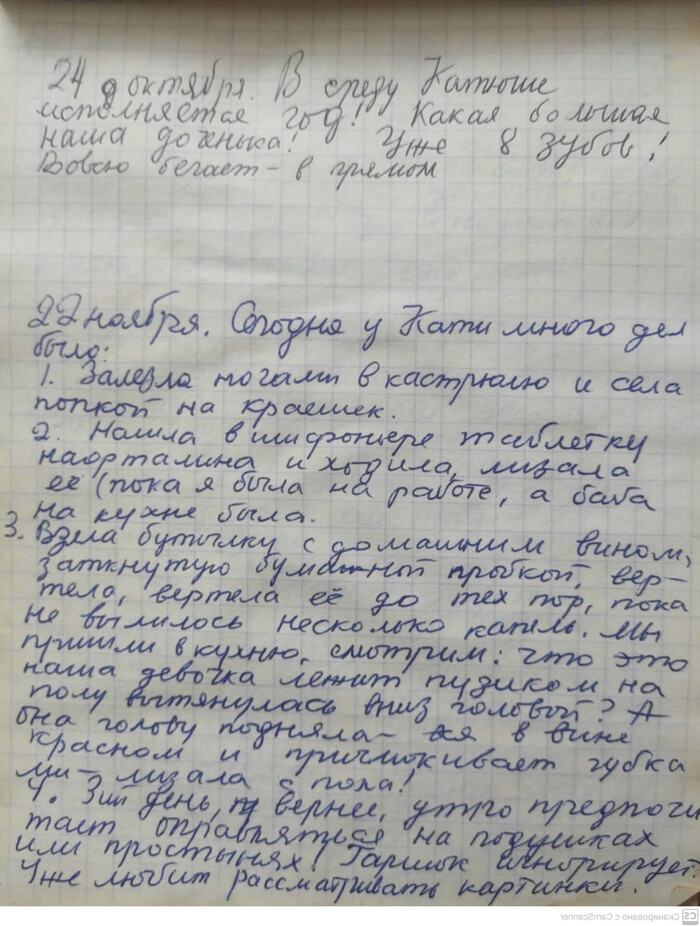 24 октября. В среду Катюше
исполняется год! Какая большая
наша доченька! Уже 8 зубов!
Вовсю бегает - в прямом
22 ноября. Сегодня у Кати много дел
было:
1. Залезла ногами в кастрюлю и села
попкой на краешек.
2. Нашла в шифоньере таблетку
нафталина и ходила, лизала
её (пока я была на работе, а баба
на кухне была.
3. Взяла бутылку с домашним вином,
заткнутую бумажной пробкой, вер-
тела, вертела её до тех пор, пока
не вылилось несколько капель. Мы
пришли в кухню, смотрим: что это
наша девочка лежит пузиком на
полу вытянулась вниз головой? А
она голову подняла - вся в вине
красном и причмокивает губка
ми - лизала с пола!
4. 3ий день, вернее, утро предпочи
тает оправляться на подушках
или простынях! Горшок игнорирует.
Уже любит рассматривать картинки.
Сканировано с CamScanner
CS